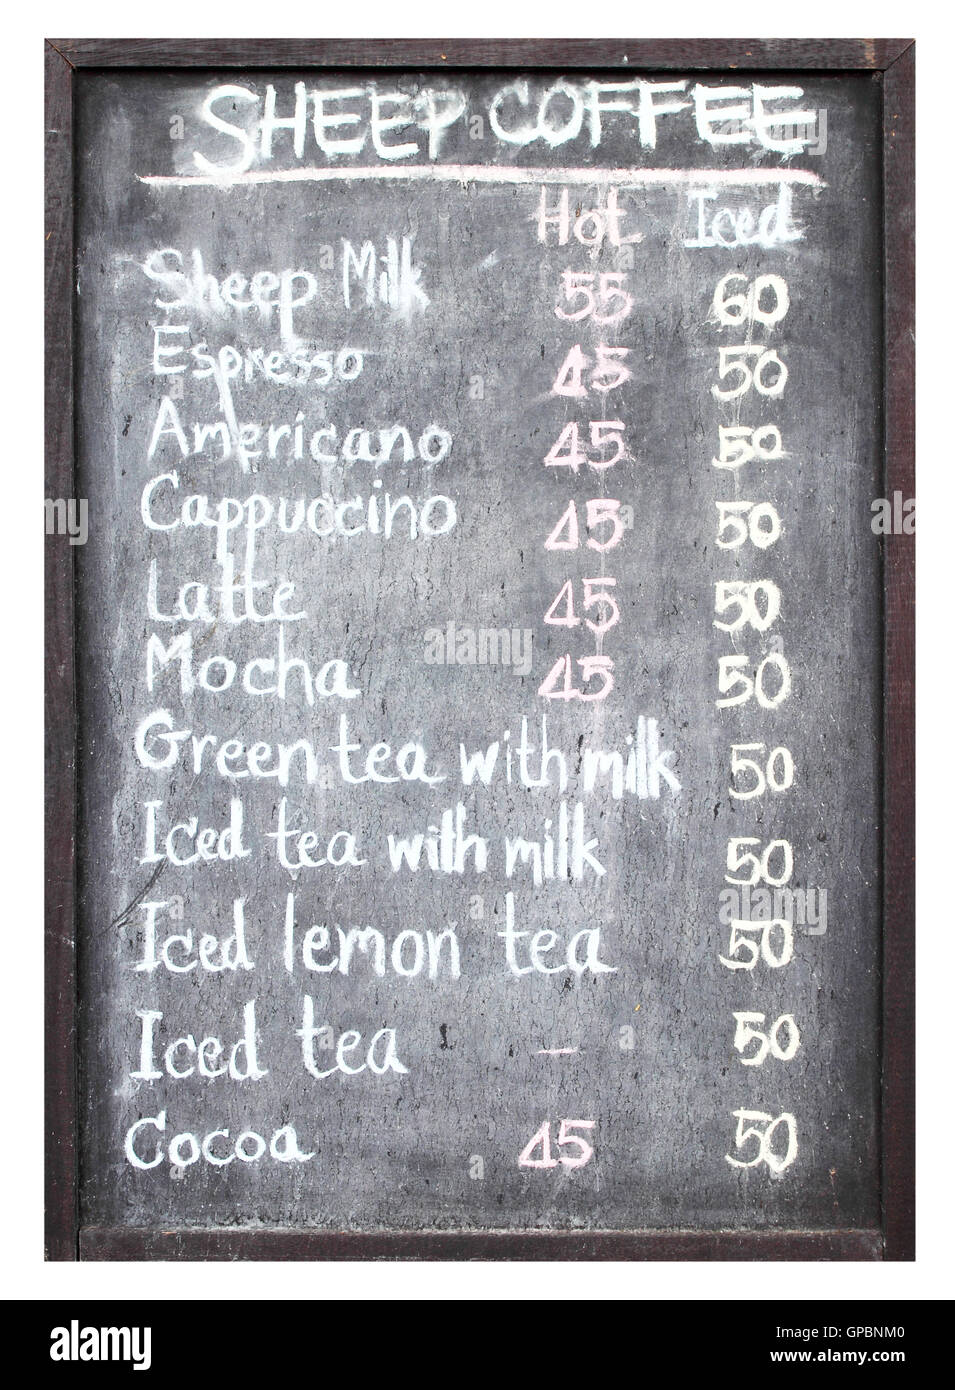 SHEEP COFFEE
Hot Iced
Sheep Milk 55 60
Espresso 45 50
Americano 45 50
Cappuccino 45 50
Latte 45 50
Mocha 45 50
Green tea with milk 50
Iced tea with milk 50
Iced lemon tea 50
Iced tea – 50
Cocoa 45 50
alamy
alamy
Image ID: GPBNM0
www.alamy.com